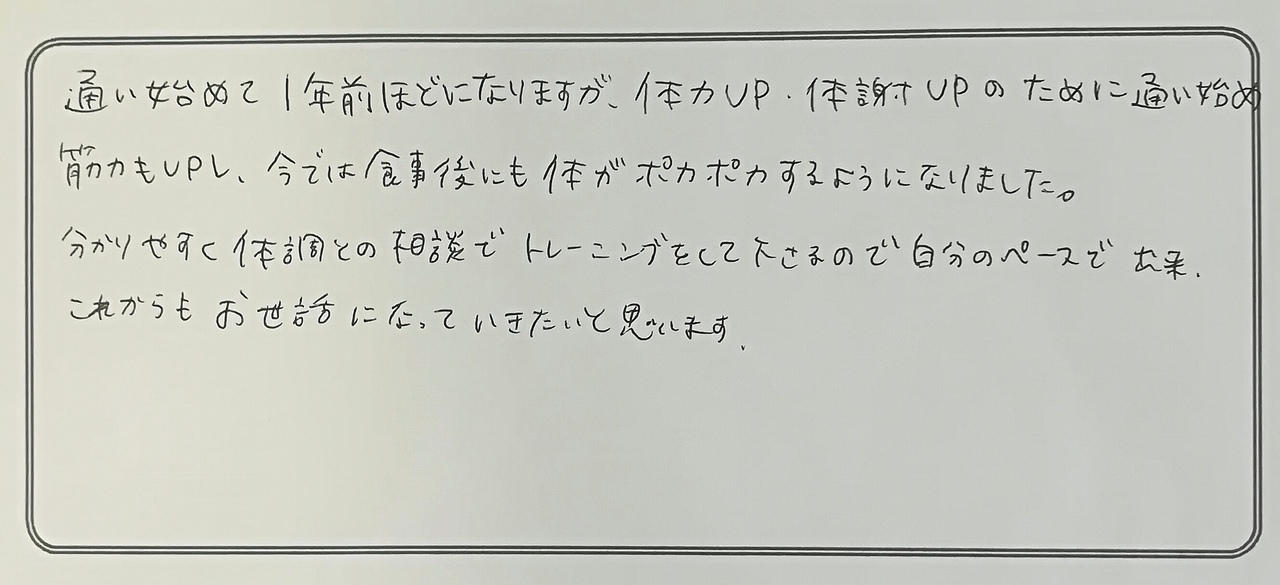 通い始めて1年前ほどになりますが、体力UP・体謝UPのために通い始め
筋力もUPし、今では食事後にも体がポカポカするようになりました。
分かりやすく体調との相談でトレーニングをして下さるので自分のペースで出来、
これからもお世話になっていきたいと思います。